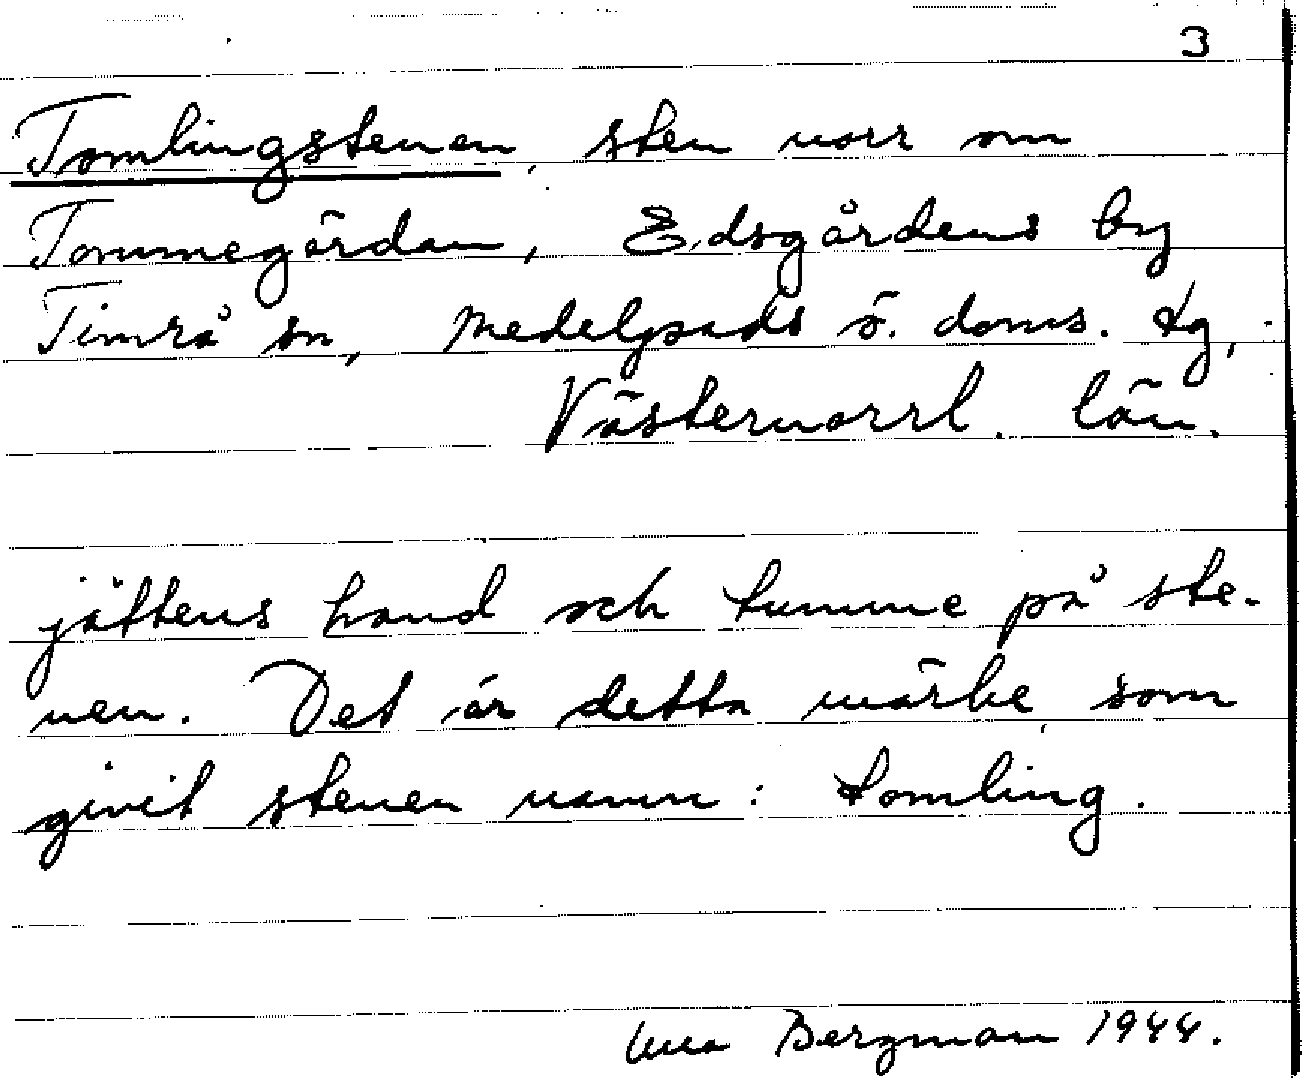 3
Tomlingstenen, sten norr om
Tommegärdan, Edsgårdens by
Timrå sn, Medelpads ö. doms. tg,
Västernorrl. län.
jättens hand och tumme på ste-
nen. Det är detta märke, som
givit stenen namn: tomling.
Bergman 1944.